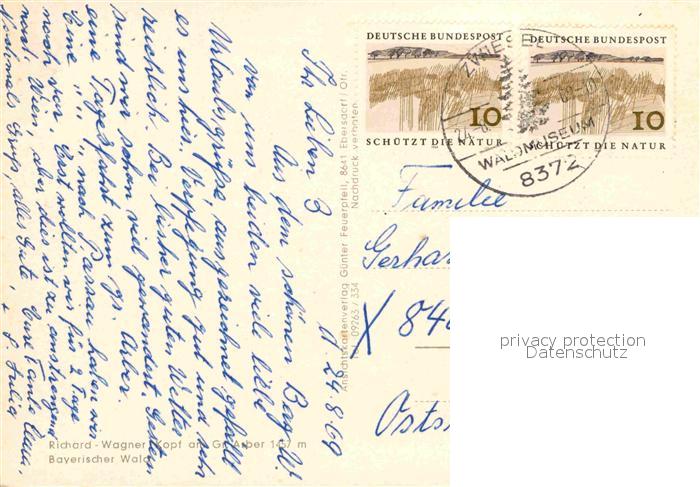 DEUTSCHE BUNDESPOST
10
SCHÜTZT DIE NATUR
DEUTSCHE BUNDESPOST
10
SCHÜTZT DIE NATUR
ZWIESEL
WALDMUSEUM
8372
Familie
Gerhar
X 84
Osts
privacy protection
Datenschutz
24.8.69
Ihr Lieben 3
Aus dem schönen Bay. W.
von uns beiden viele liebe
Urlaubsgrüße, ausgezeichnet gefällt
es uns hier. Verpflegung gut und sehr
reichlich. Bei bisher guten Wetter
sind wir schon viel gewandert. Gestern
eine Tagesfahrt zum gr. Arber.
Eine " nach Passau haben wir
noch vor. Erst wollten wir für 2 Tage
nach Wien, aber dies ist zu anstrengend
Nochmals Gruß, alles Gute Eure Tante
Ansichtskartenverlag Günter Feuerpfeil, 8641 Ebersdorf/Ofr.
Tel. 09263/334 Nachdruck verboten
Richard-Wagner-Kopf am Gr. Arber 1457 m
Bayerischer Wald